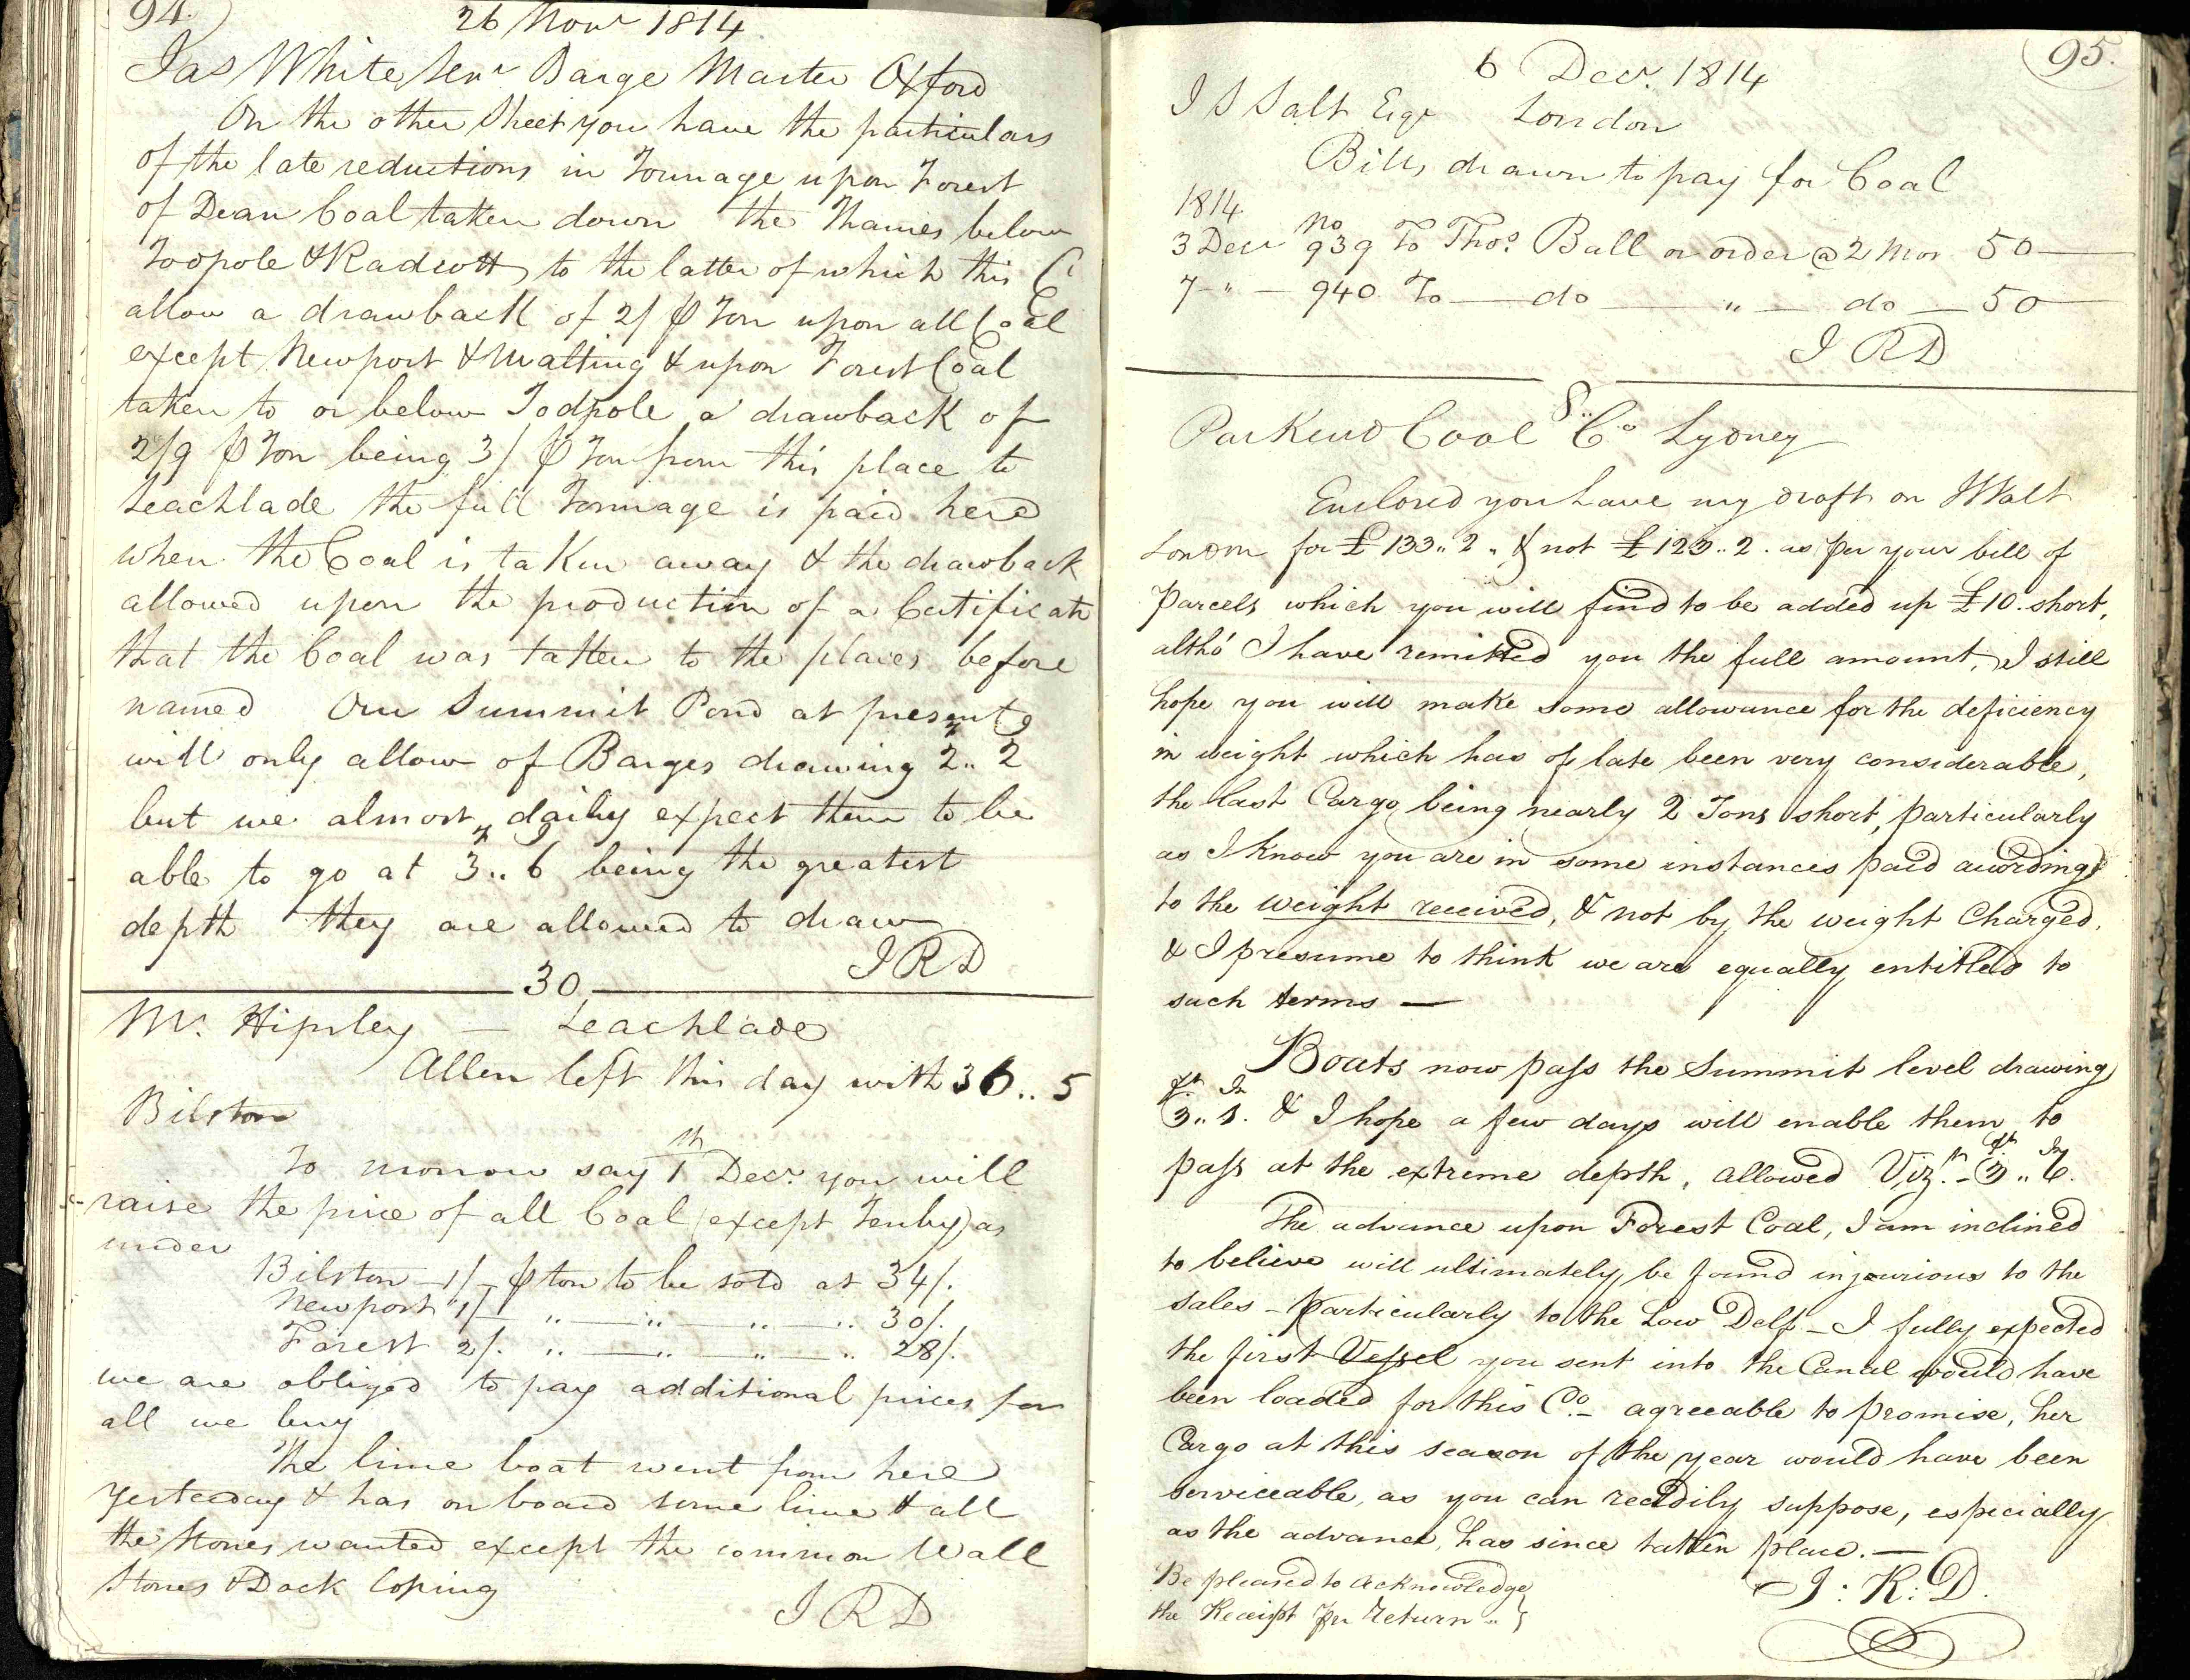 94.
26 Novr 1814
Jas White Senr Barge Master Oxford
On the other Sheet you have the particulars
of the late reductions in Tonnage upon Forest
of Dean Coal taken down the Thames below
Todpole & Radcott, to the latter of which this Co
allow a drawback of 2/ ⅌ Ton upon all Coal
except Newport & Malting & upon Forest Coal
taken to or below Todpole a drawback of
2/9 ⅌ Ton being 3/ ⅌ Ton from this place to
Leachlade the full Tonnage is paid here
when the Coal is taken away & the drawback
allowed upon the production of a Certificate
that the Coal was taken to the places before
named Our Summit Pond at present
will only allow of Barges drawing 2.. 2
but we almost daily expect them to be
able to go at 3.. 6 being the greatest
depth they are allowed to draw
IRD
30
Mr. Hipsley — Leachlade
Allen left this day with 36.. 5
Bilston
To morrow say 1th Decr. you will
raise the price of all Coal (except Tenby) as
under
Bilston 1/- ⅌ ton to be sold at 34/.
Newport 1/- „ — „ — „ — „ 30/.
Forest 2/. „ — „ — „ — „ 28/.
we are obliged to pay additional prices for
all we buy
The lime boat went from here
Yesterday & has on board some lime & all
the Stones wanted except the common Wall
Stones & Dock Coping
IRD
95.
6 Decr. 1814
I S Salt Esqr London
Bills drawn to pay for Coal
1814
3 Decr No 939 To Thos. Ball or order @ 2 Mos 50 —
7 — „ — 940 To — do — „ — do — 50 —
IRD
8..
Parkend Coal Co Lydney
Enclosed you have my draft on I S Salt
London for £133.. 2 „ & not £123.. 2. as per your bill of
Parcels which you will find to be added up £10. short,
altho' I have remitted you the full amount, I still
hope you will make some allowance for the deficiency
in weight which has of late been very considerable,
the last Cargo being nearly 2 Tons short, particularly
as I know you are in some instances paid according
to the weight received, & not by the weight Charged,
& I presume to think we are equally entitled to
such terms —
Boats now pass the Summit level drawing
ft In
3.. 1. & I hope a few days will enable them to
pass at the extreme depth, allowed Vizt. - 3 ft .. 6 In.
The advance upon Forest Coal, I am inclined
to believe will ultimately be found injourious to the
sales - particularly to the Low Delf - I fully expected
the first Vessel you sent into the Canal would have
been loaded for this Co. - agreeable to promise, her
Cargo at this season of the year would have been
serviceable, as you can readily suppose, especially
as the advance, has since taken place. —
I: R: D.
Be pleased to acknowledge
the Receipt per return ..